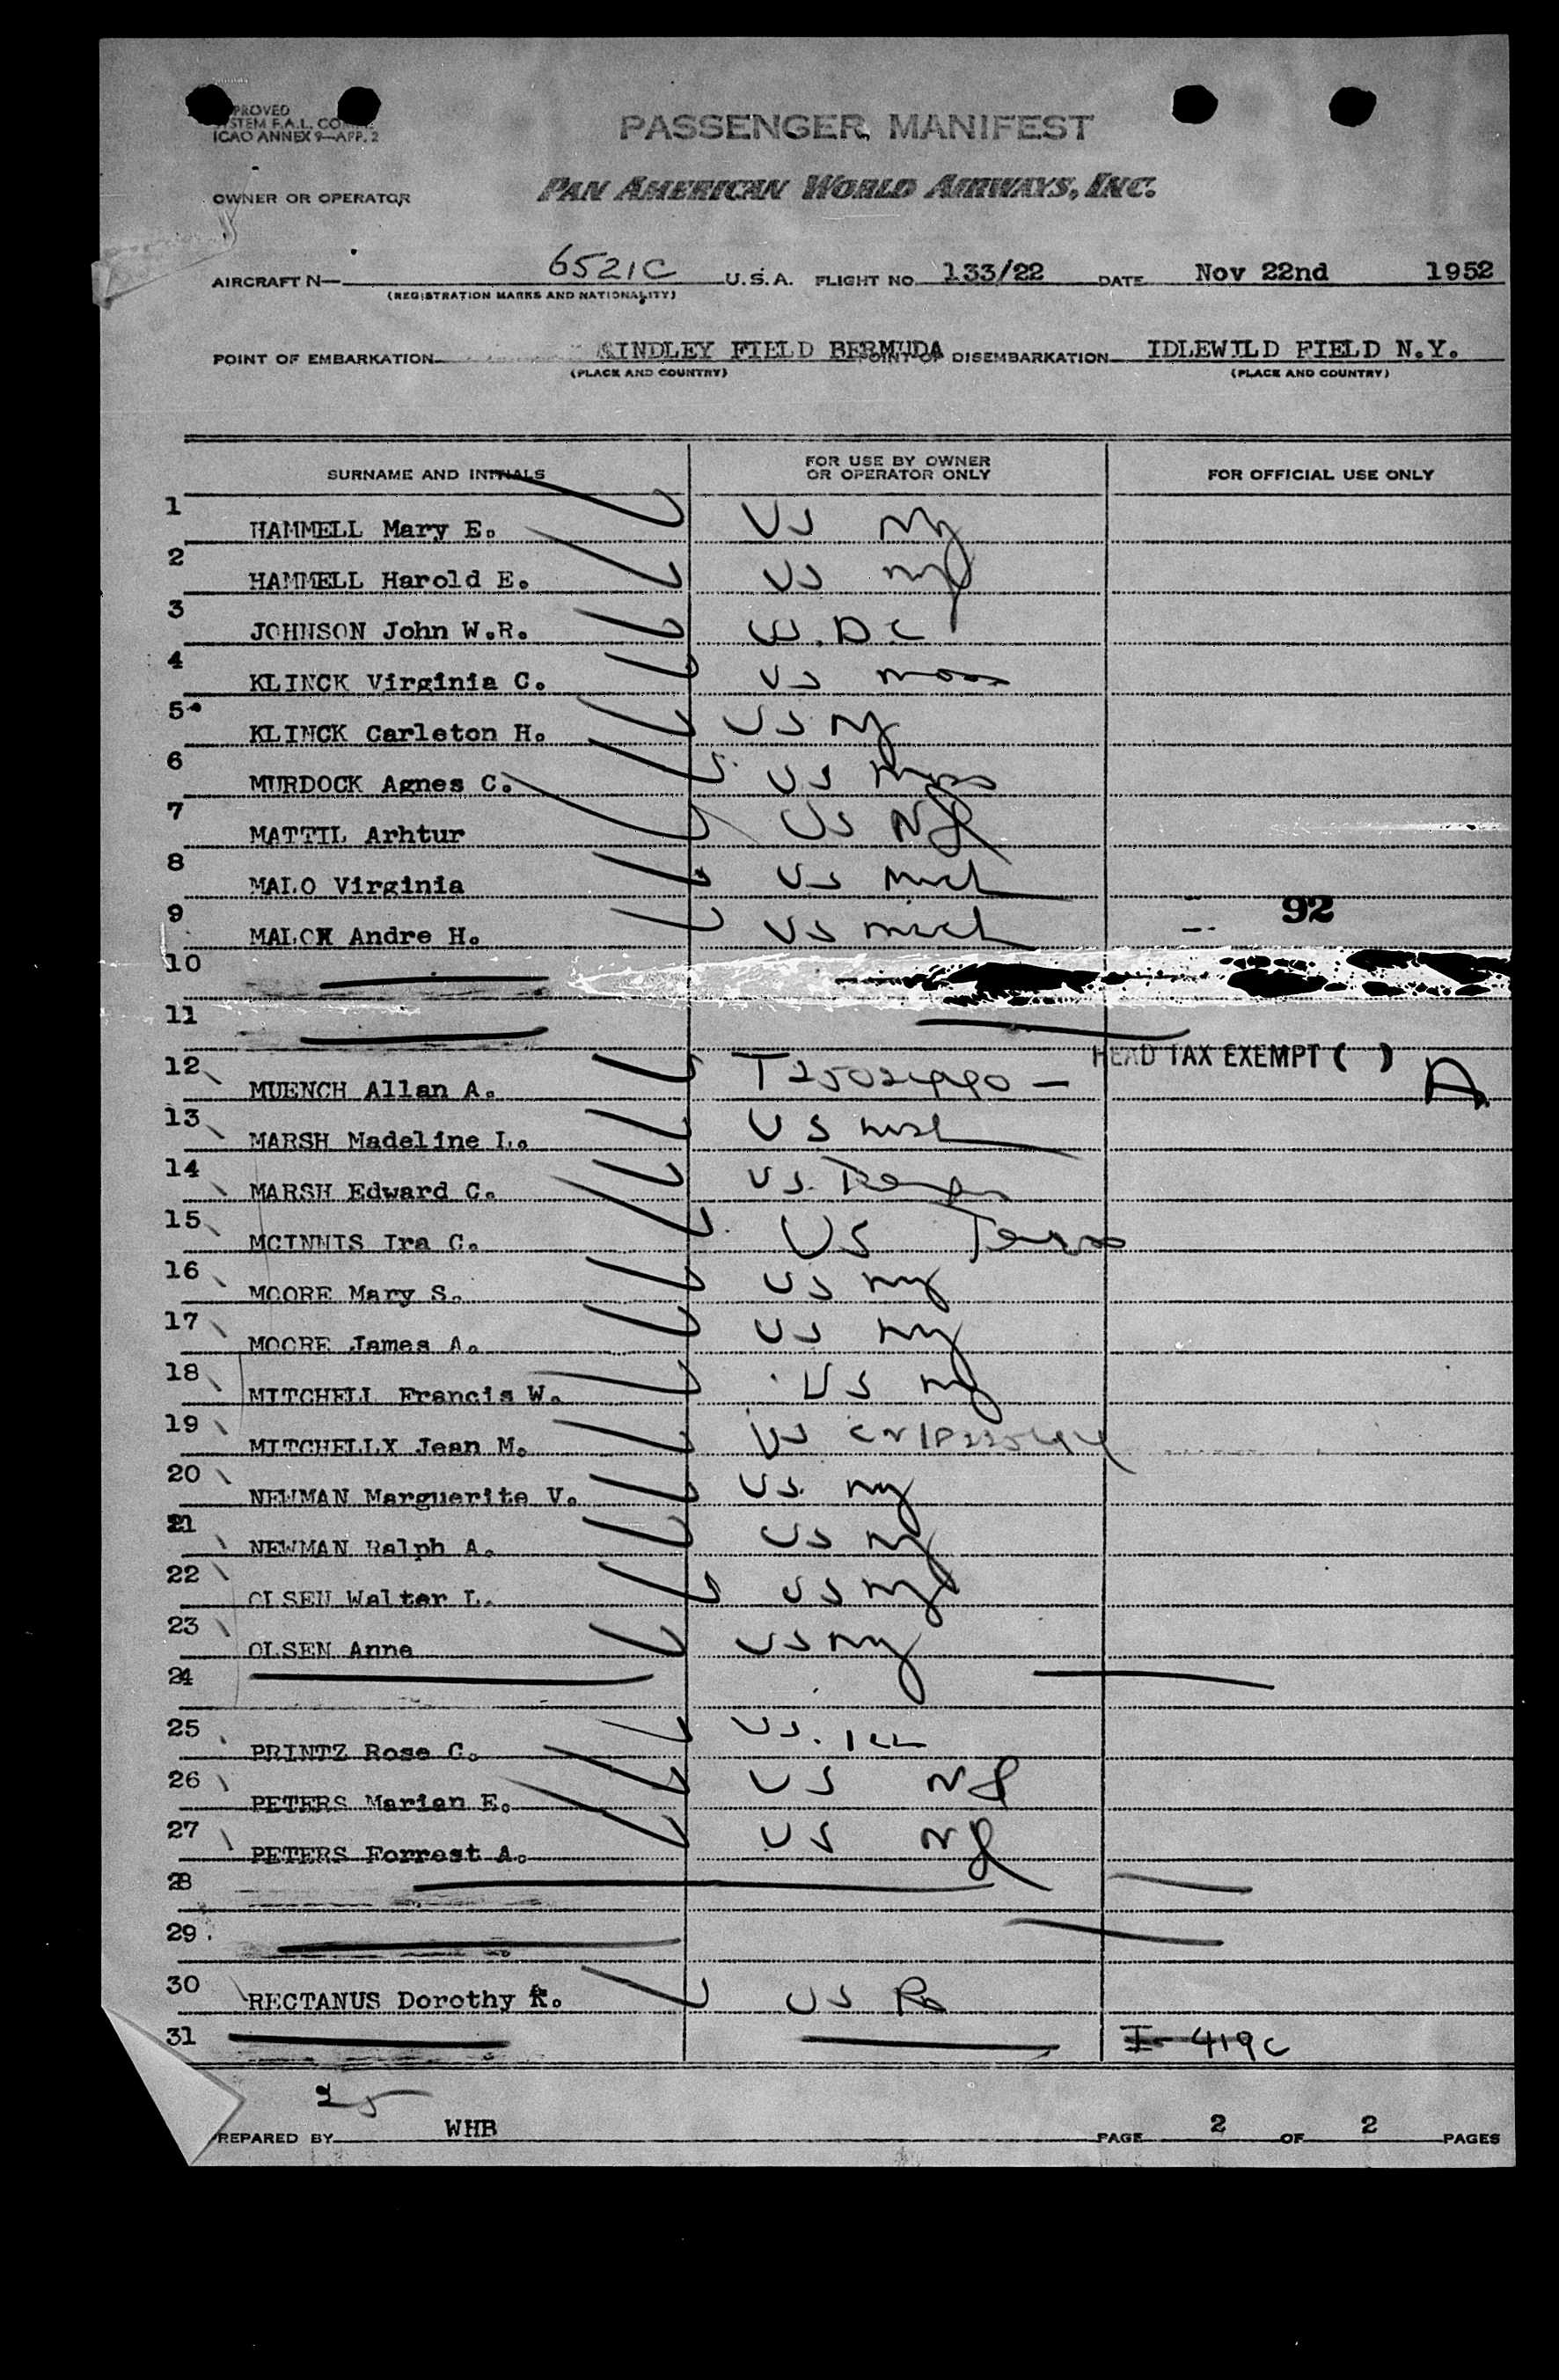 PROVED
STEM F.A.L. COM
ICAO ANNEX 9—APP. 2
PASSENGER MANIFEST
OWNER OR OPERATOR PAN AMERICAN WORLD AIRWAYS, INC.
AIRCRAFT N— 6521C U.S.A. FLIGHT NO. 133/22 DATE Nov 22nd 1952
(REGISTRATION MARKS AND NATIONALITY)
POINT OF EMBARKATION KINDLEY FIELD BERMUDA POINT OF DISEMBARKATION IDLEWILD FIELD N.Y.
(PLACE AND COUNTRY) (PLACE AND COUNTRY)
SURNAME AND INITIALS FOR USE BY OWNER OR OPERATOR ONLY FOR OFFICIAL USE ONLY
1 HAMMELL Mary E. US NY
2 HAMMELL Harold E. US NY
3 JOHNSON John W.R. W.DC
4 KLINCK Virginia C. US mass
5 KLINCK Carleton H. US NY
6 MURDOCK Agnes C. US
7 MATTIL Arhtur US NJ
8 MALO Virginia US mich
9 MALOX Andre H. US mich 92
10
11
12 MUENCH Allan A. T2502440 — HEAD TAX EXEMPT ( ) A
13 MARSH Madeline L. US
14 MARSH Edward C. US.
15 MCINNIS Ira C. US Texas
16 MOORE Mary S. US ny
17 MOORE James A. US ny
18 MITCHELL Francis W. US ny
19 MITCHELLX Jean M. US
20 NEWMAN Marguerite V. US. ny
21 NEWMAN Ralph A. US ny
22 OLSEN Walter L. US ny
23 OLSEN Anne US ny
24
25 PRINTZ Rose C. US. ILL
26 PETERS Marian E. US NJ
27 PETERS Forrest A. US NJ
28
29
30 RECTANUS Dorothy R. US Pa
31 I- 419c
25
PREPARED BY WHB PAGE 2 OF 2 PAGES